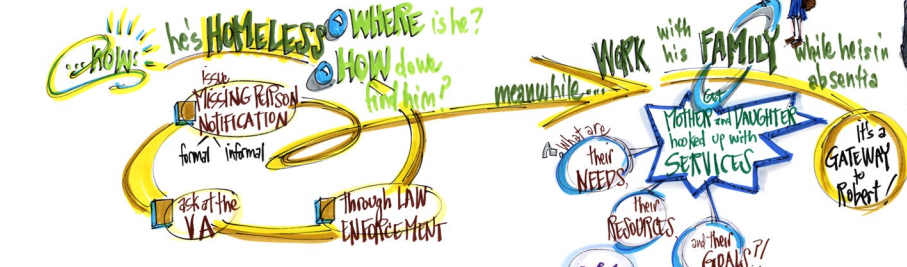 ...NOW:
he's HOMELESS
WHERE is he?
HOW do we
find him?
issue
MISSING PERSON
NOTIFICATION
formal informal
ask at the
VA
through LAW
ENFORCEMENT
meanwhile....
WORK with
his FAMILY
while he is in
absentia
Get
MOTHER and DAUGHTER
hooked up with
SERVICES
What are
their
NEEDS,
their
RESOURCES,
and their
GOALS?!
It's a
GATEWAY
to
Robert!